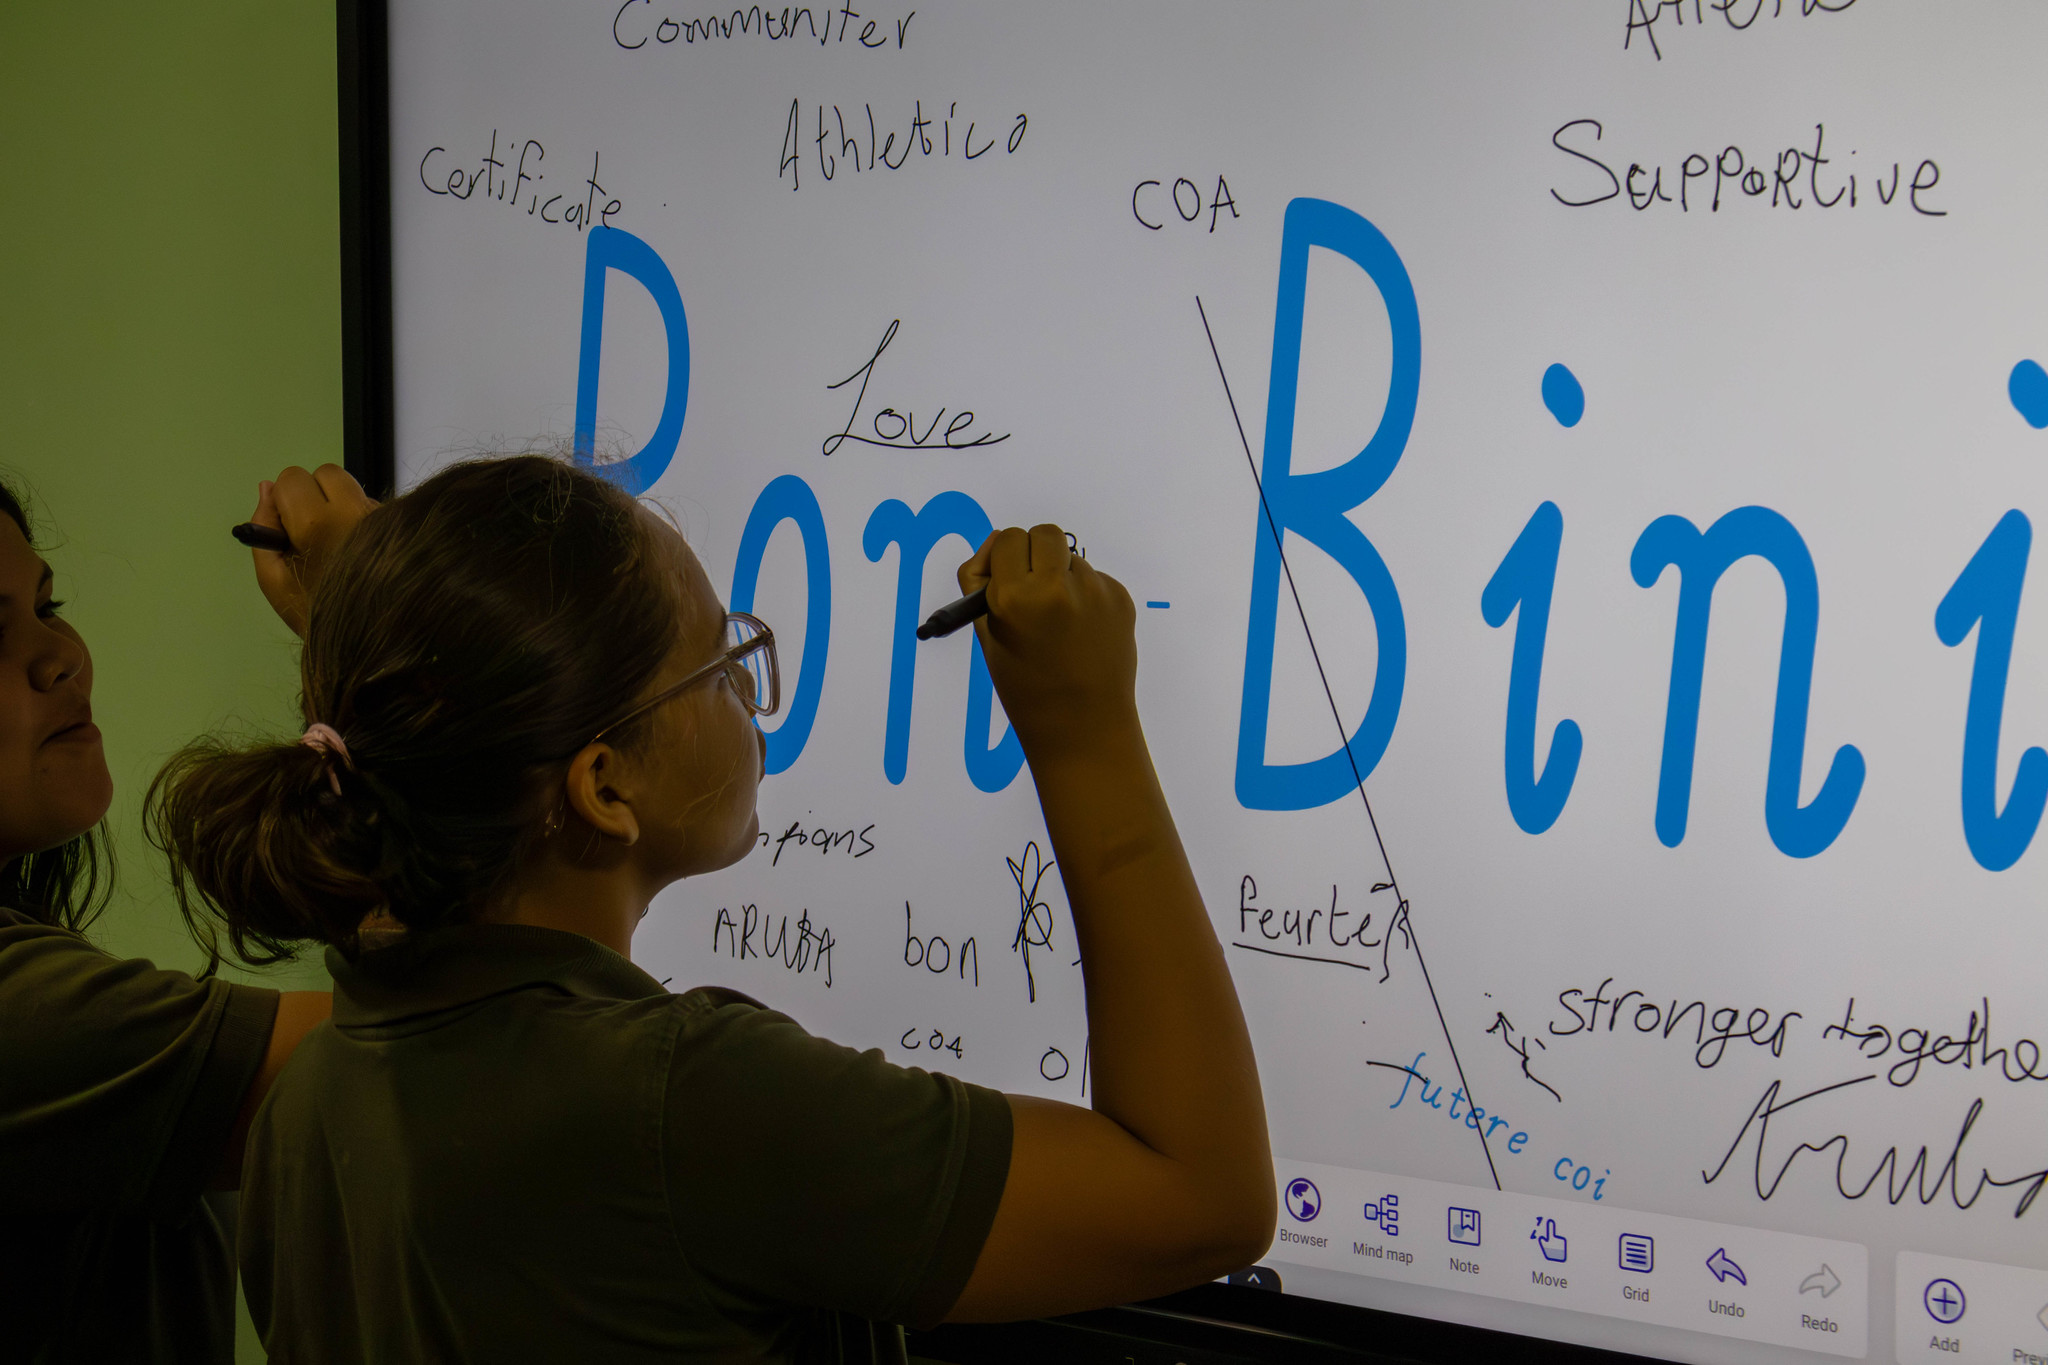 Communiter
Athletico
Certificate
COA
Supportive
Love
Bon-Bini
ARUBA bon
COA
Stronger togethe
futere coi
Aruba
Browser
Mind map
Note
Move
Grid
Undo
Redo
Add